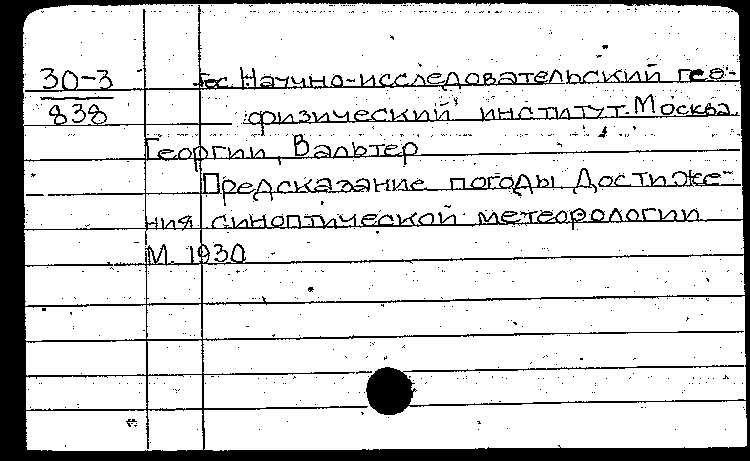 30-3 Гос. Научно-исследовательский гео-
838 физический институт. Москва.
Георгии, Вальтер
Предсказание погоды Достиже-
ния синоптической метеорологии
М. 1930